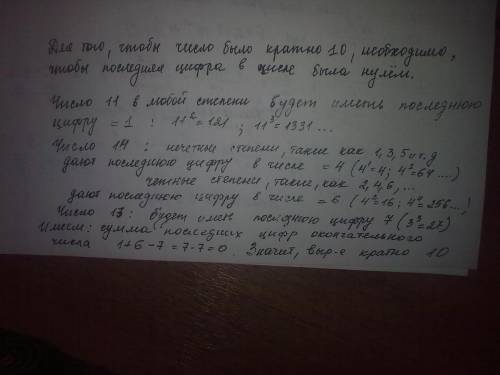 Для того, чтобы число было кратно 10, необходимо,
чтобы последняя цифра в числе была нулём.
Число 11 в любой степени будет иметь последнюю
цифру = 1 : 11² = 121 ; 11³ = 1331 ...
Число 14 : нечетные степени, такие как 1,3,5 и т.д
дают последнюю цифру в числе = 4 (4¹=4; 4³=64 ....)
четные степени, такие, как 2,4,6, ...
дают последнюю цифру в числе = 6 (4²=16; 4⁴=256...)
Число 13: будет имен последнюю цифру 7 (3³=27)
Имеем: сумма последних цифр окончательного
числа 1+6-7=7-7=0. Значит, выр-е кратно 10